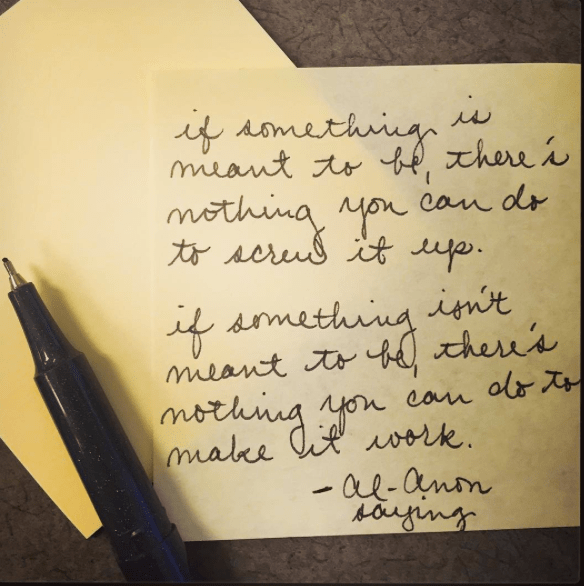 if something is
meant to be, there's
nothing you can do
to screw it up.
if something isn't
meant to be, there's
nothing you can do to
make it work.
- Al-Anon
saying